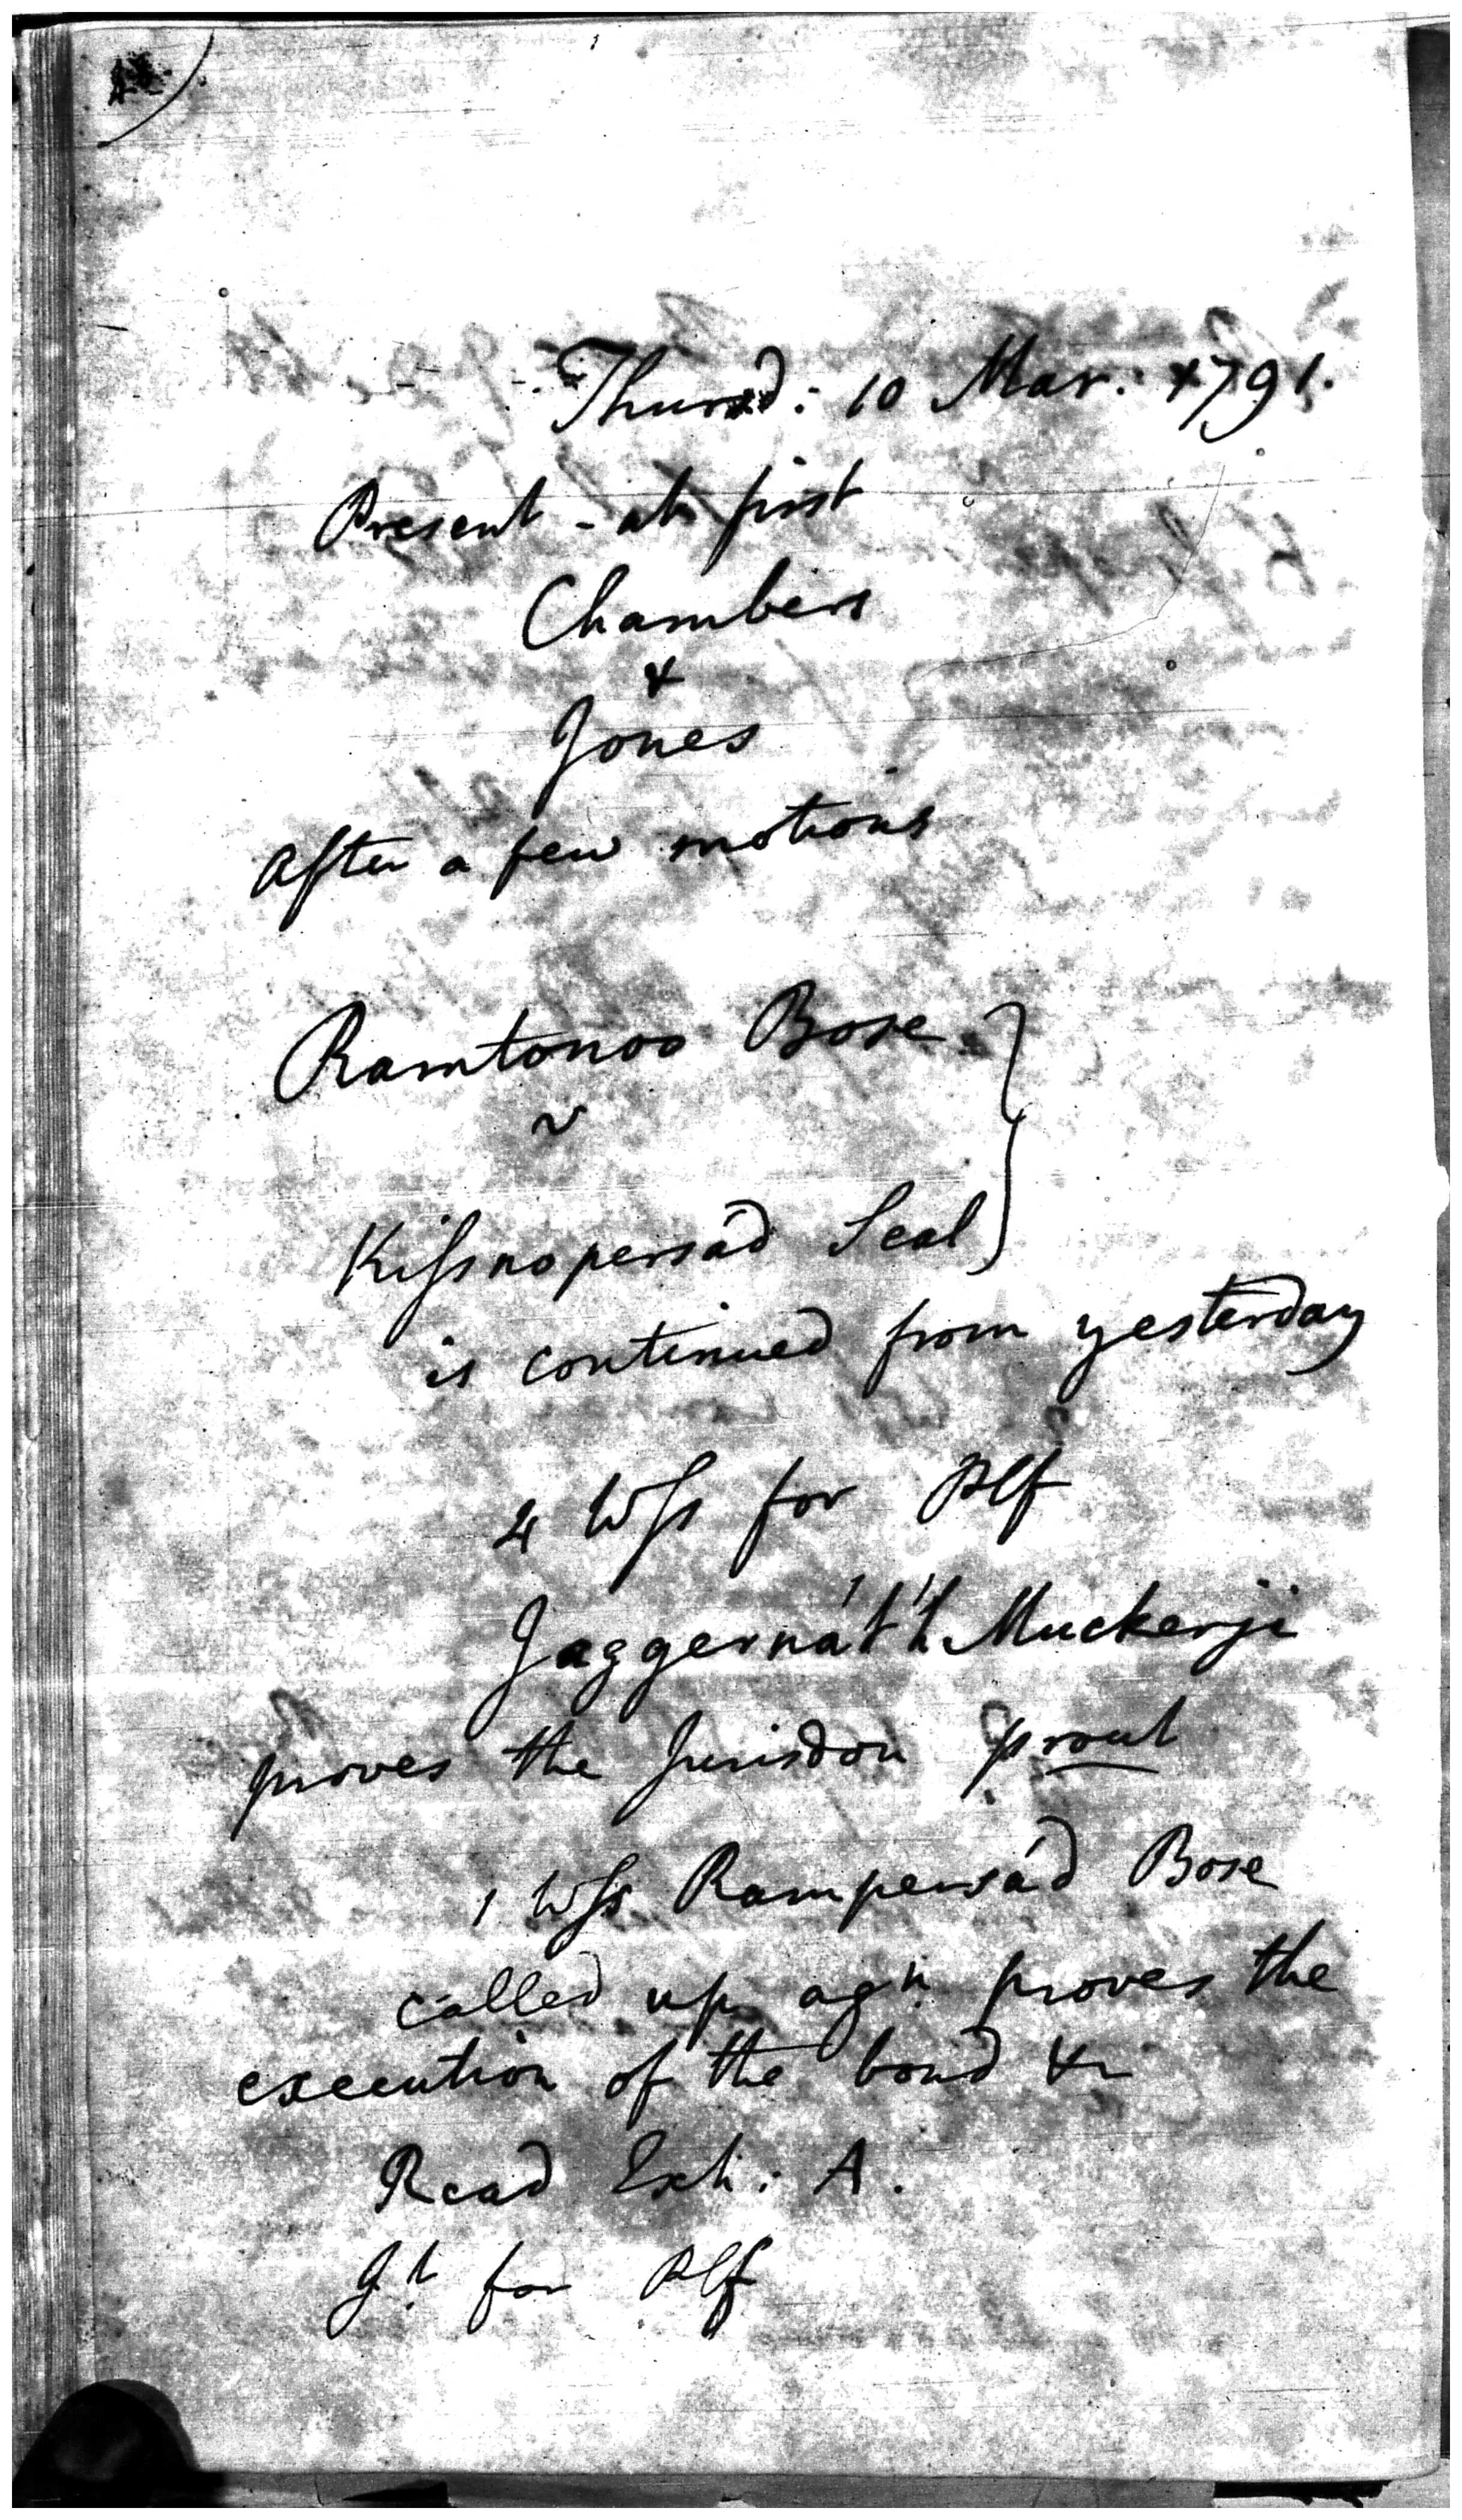 Thursd: 10 Mar: 1791.
Present - at first
Chambers
&
Jones
After a few motions
Ramtonoo Bose
v
Kissnopersád Seal
is continued from yesterday
4 Wss for Plf
Jaggernát'h Muckerji
proves the Jurisdon prout
1 Wss Rampersád Bose
called up agn. proves the
execution of the bond &c
Read Exh: A.
Jt. for Plf